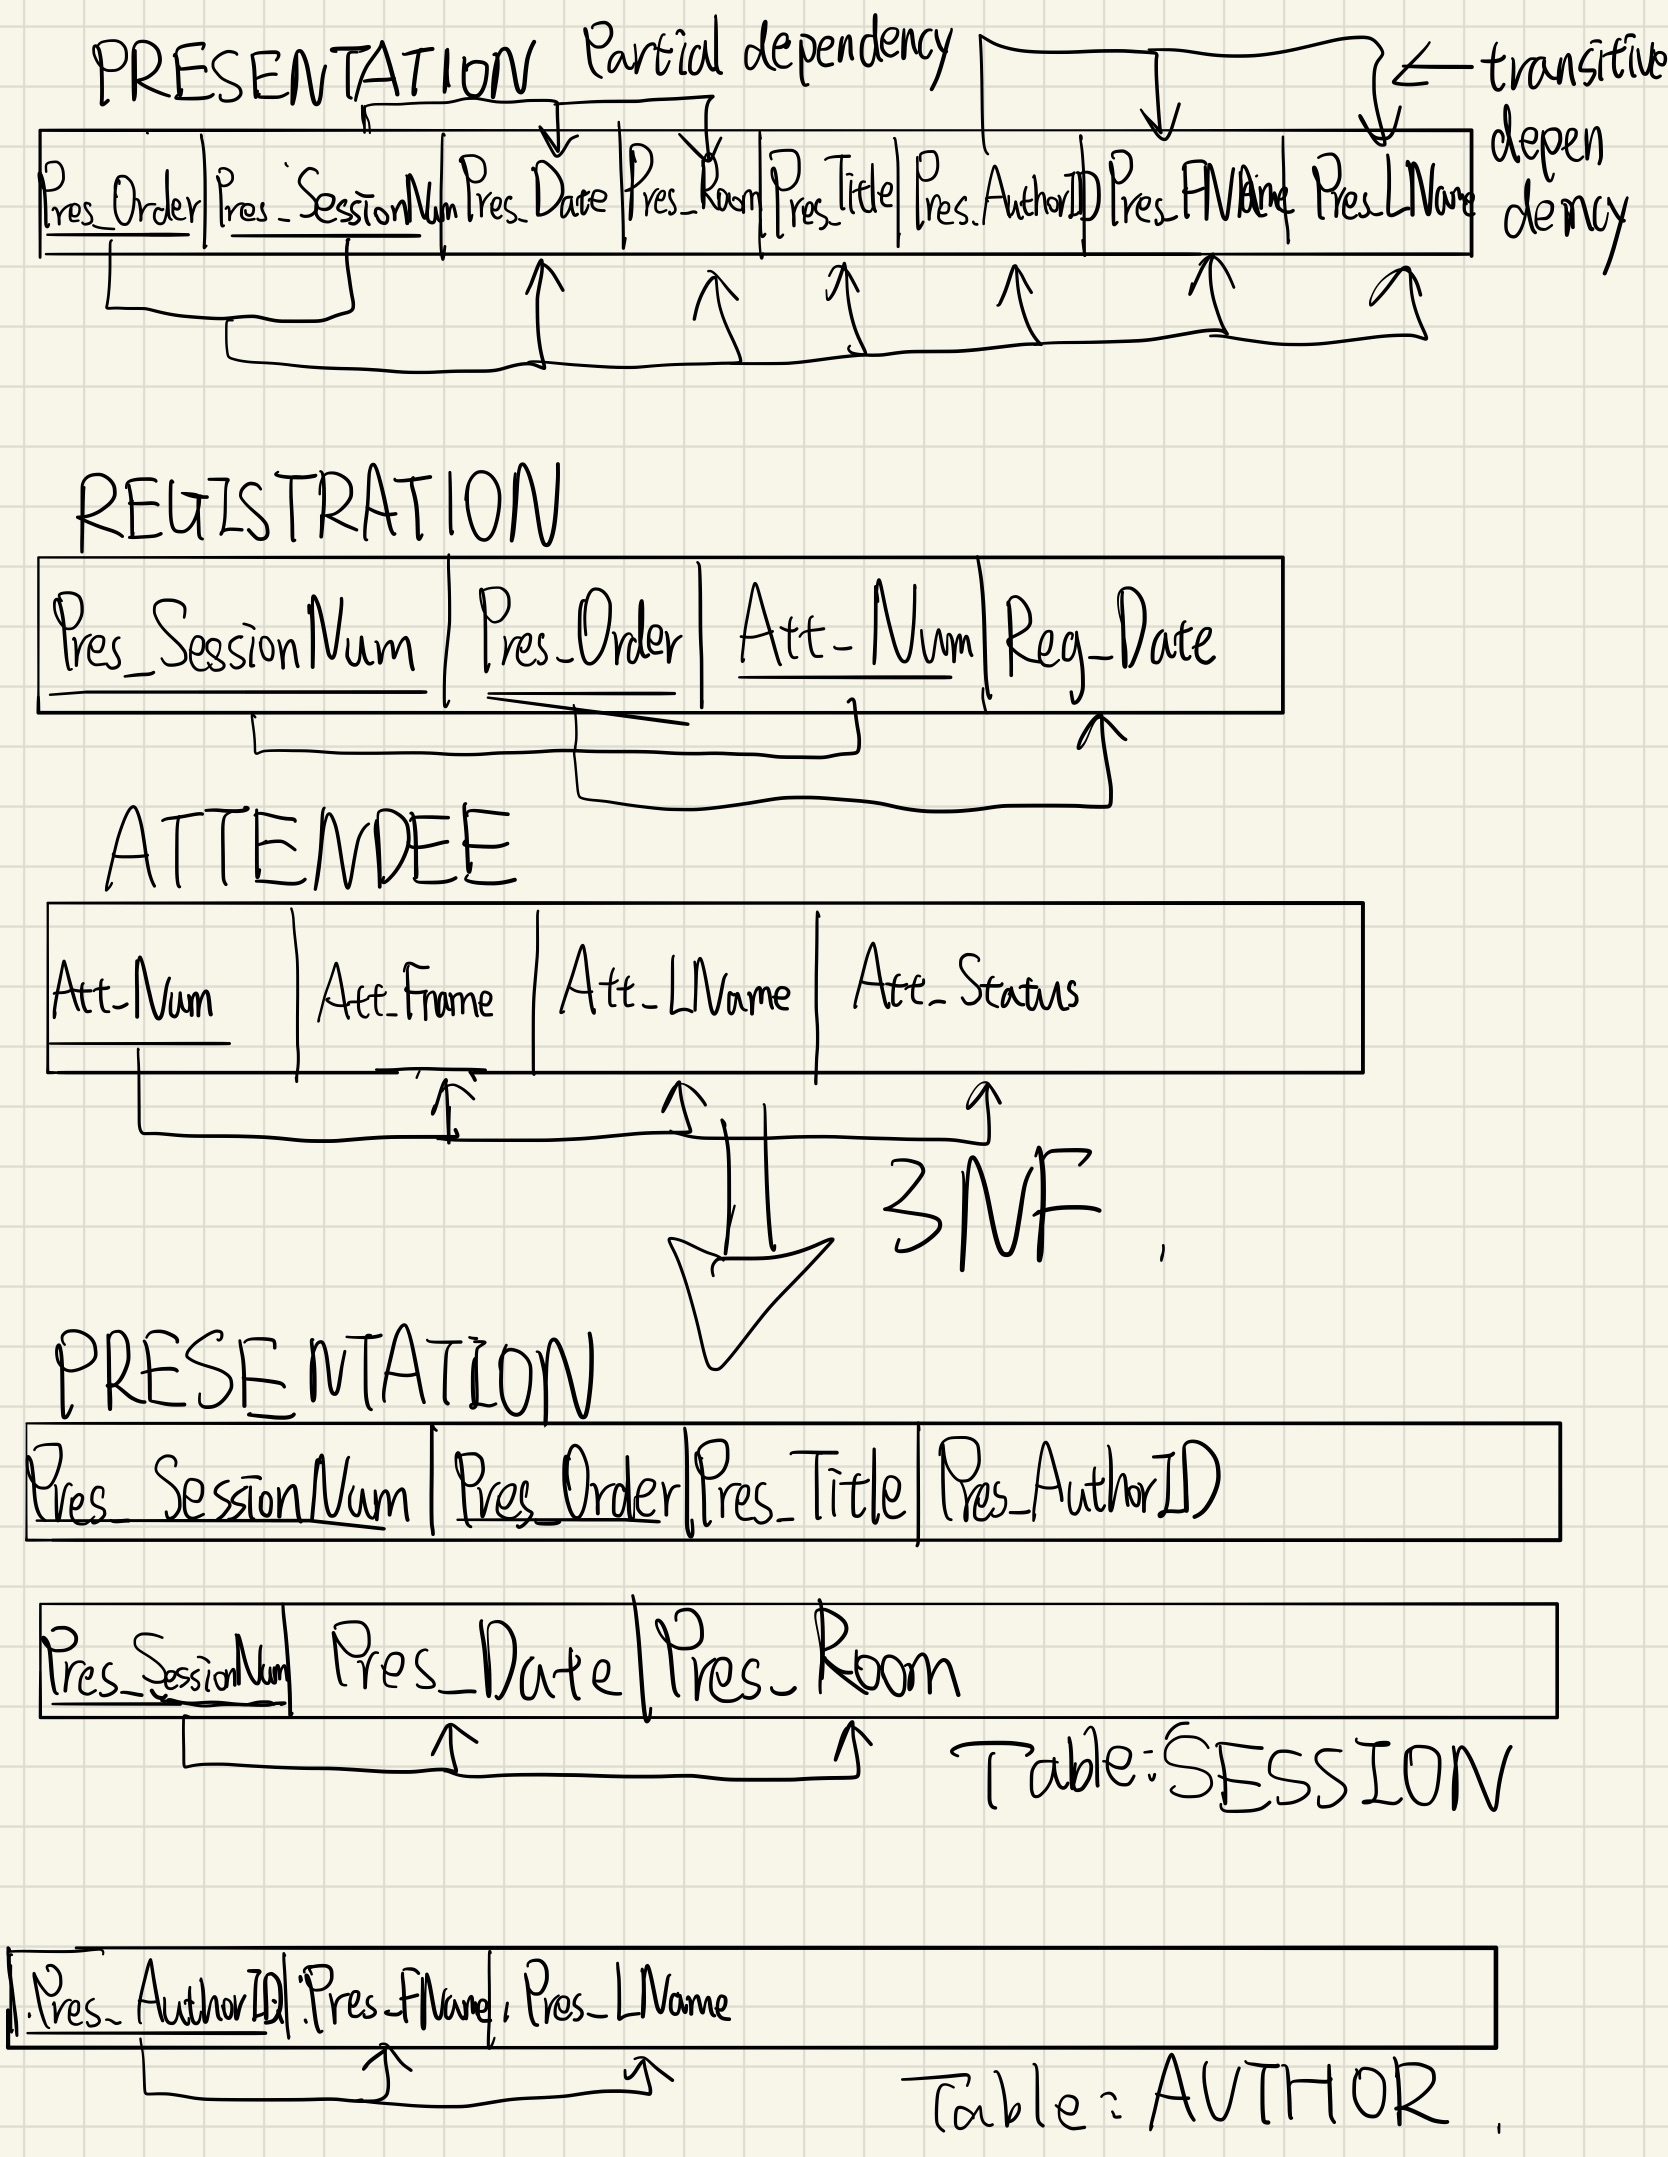 PRESENTATION Partial dependency
transitive
depen
dency
Pres_Order Pres_SessionNum Pres_Date Pres_Room Pres_Title Pres_AuthorID Pres_FName Pres_LName
REGISTRATION
Pres_SessionNum Pres_Order Att_Num Reg_Date
ATTENDEE
Att_Num Att_Fname Att_LName Att_Status
3NF
PRESENTATION
Pres_SessionNum Pres_Order Pres_Title Pres_AuthorID
Pres_SessionNum Pres_Date Pres_Room
Table:SESSION
Pres_AuthorID Pres_FName Pres_LName
Table:AUTHOR